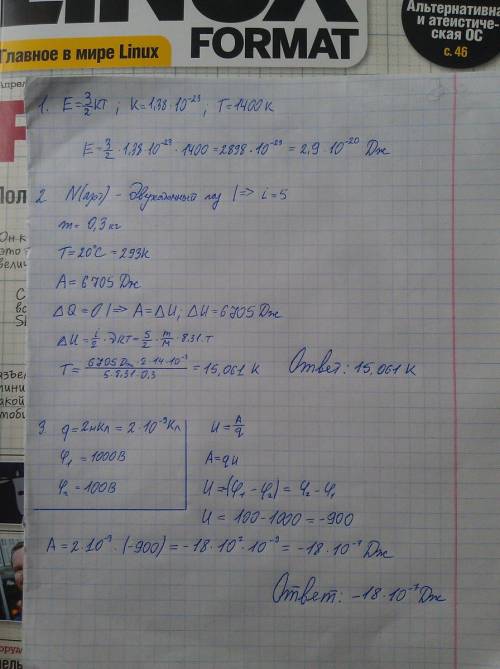 LINUX
FORMAT
Главное в мире Linux
Альтернативна
и атеистиче-
ская ОС
с. 46
1. E = 3/2 кТ ; К = 1,38 · 10⁻²³ ; Т = 1400 К
E = 3/2 · 1,38 · 10⁻²³ · 1400 = 2898 · 10⁻²³ = 2,9 · 10⁻²⁰ Дж
2 N(арт) - Двухатомный газ |=> i = 5
m = 0,3 кг
T = 20°C = 293К
A = 6705 Дж
ΔQ = 0 |=> A = ΔU; ΔU = 6705 Дж
ΔU = i/2 · ЭКТ = 5/2 · m/M · 8.31 · T
T = 6705 Дж · 2 · 14 · 10⁻³ / 5 · 8,31 · 0,3 = 15,061 К Ответ: 15,061 К
3. q = 2нКл = 2 · 10⁻⁹ Кл U = A/q
φ₁ = 1000В A = qU
φ₂ = 100В U = -(φ₁ - φ₂) = φ₂ - φ₁
U = 100 - 1000 = -900
A = 2 · 10⁻⁹ · (-900) = -18 · 10² · 10⁻⁹ = -18 · 10⁻⁷ Дж
Ответ: -18 · 10⁻⁷ Дж